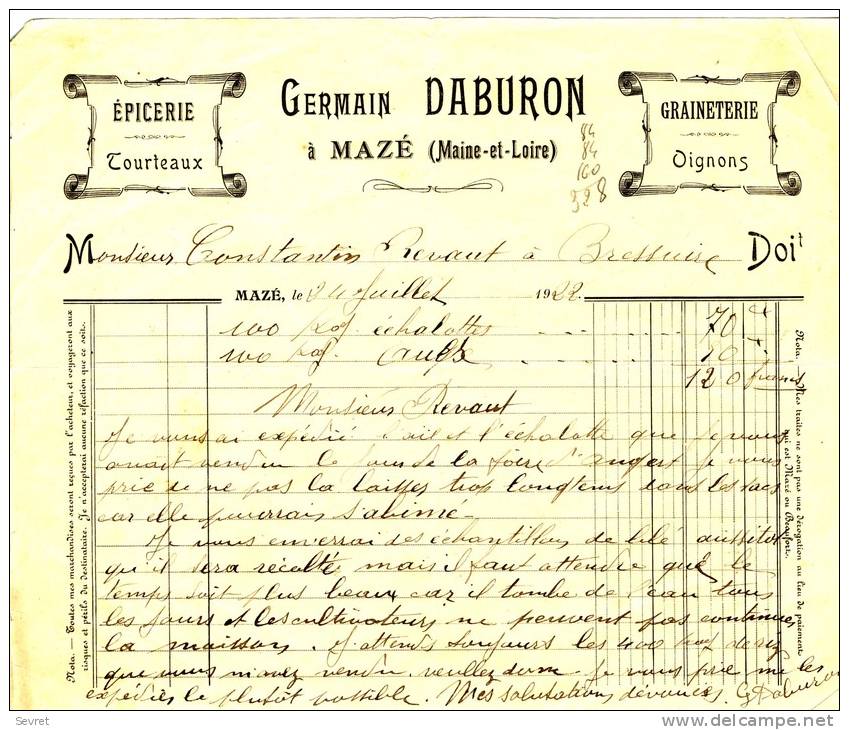 ÉPICERIE
Tourteaux
GERMAIN DABURON
à MAZÉ (Maine-et-Loire)
GRAINETERIE
Oignons
84
84
160
328
Monsieur Constantin Revaut à Bressuire Doit
MAZÉ, le 24 Juillet 1922
100 Kog. échalottes 70
100 Kog.
120 francs
Monsieur Revaut
Je vous ai expédié l'ail et l'échalotte que je vous
avait vendu le jour de la foire d'angers Je vous
prie de ne pas la laisser trop longtems dans les sacs
car elle pourrais s'abimé
Je vous enverrai des échantillon de blé aussitot
qu'il sera récolté mais il faut attendre que le
temps soit plus beau car il tombe de l'eau tous
les jours et les cultivateurs ne peuvent pas continuer
la maisson. J'attends toujours les 400 Kog de riz
que vous m'avez vendu veullez donc je vous prie me les
expédiés le plutôt possible. Mes salutations dévoués. G Daburon
Nota. — Toutes mes marchandises seront reçues par l'acheteur, et voyageront aux
risques et périls du destinataire. Je n'accepterai aucune réfaction que ce soit.
Nota. Mes traites ne sont pas une dérogation au lieu de paiement
qui est Mazé ou Beaufort.
Sevret
delcampe.net